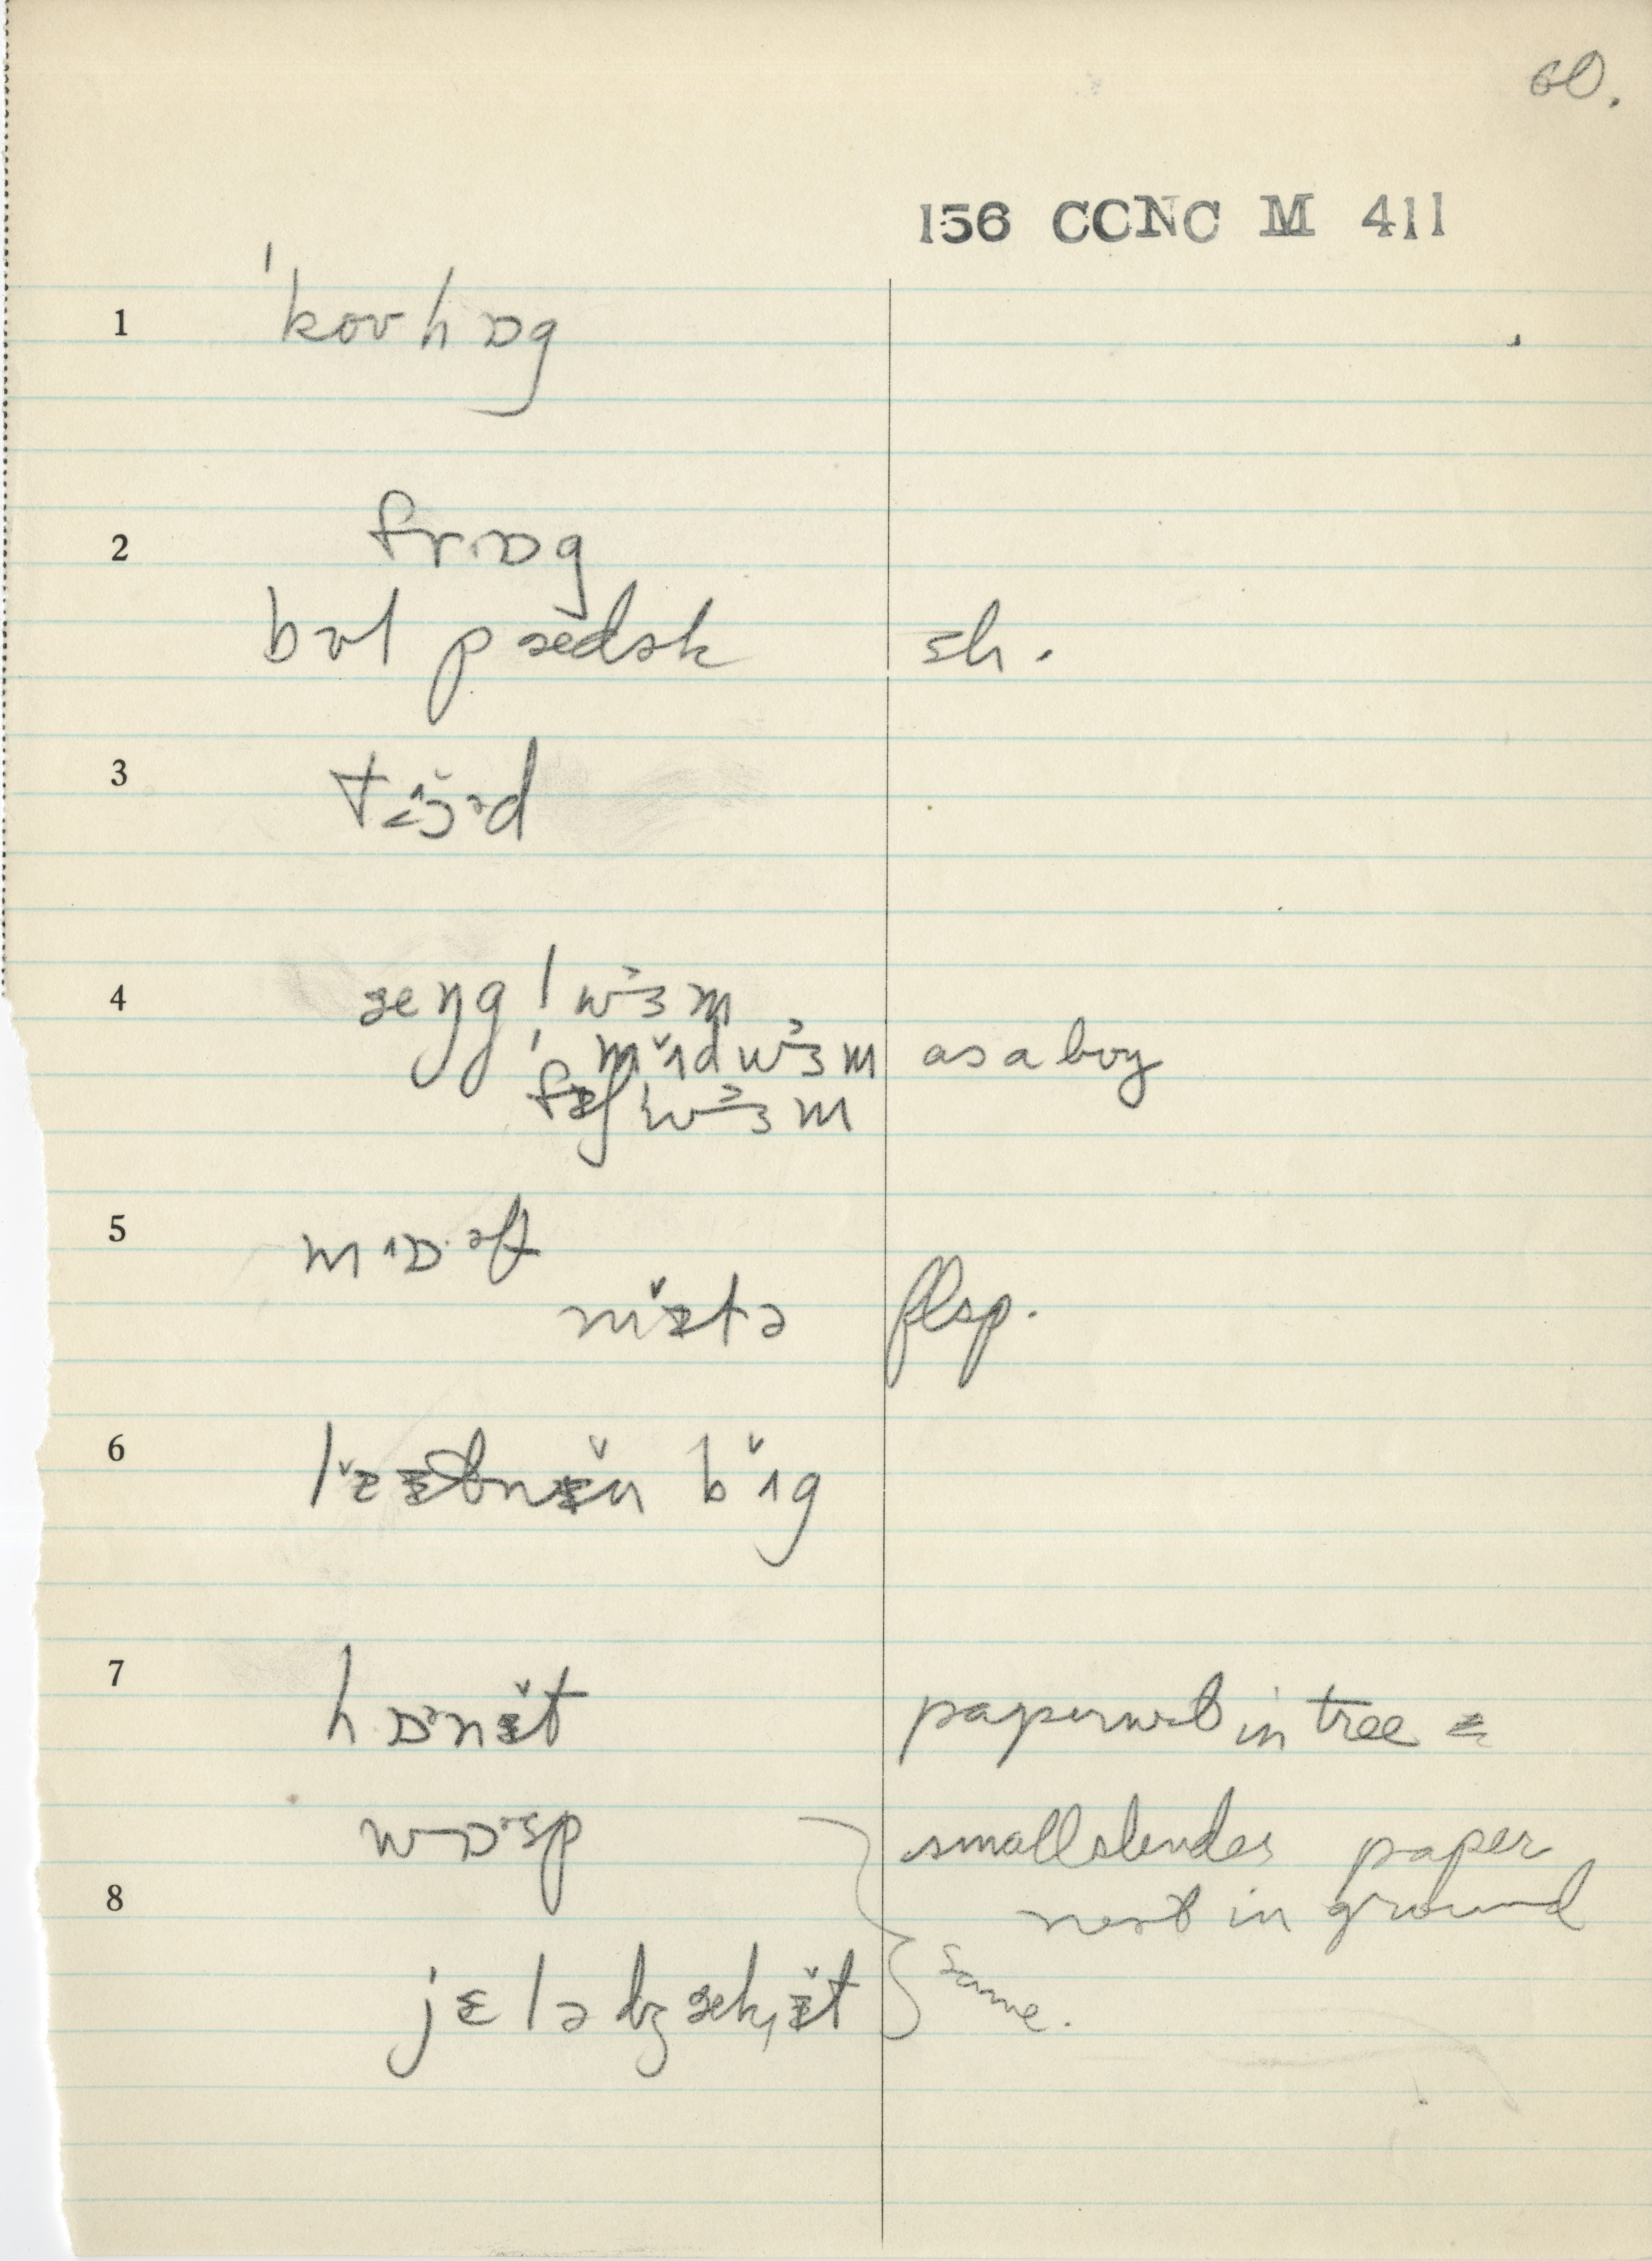 60.
156 CCNC M 411
1 ˈkoʊhɒg
2 frɒg
bʊl pædək sh.
3
4 æŋgˈlwɜm
ˈmɪ̌dwɜm as a boy
fɪʃˈwɜm
5 mɒəf
flsp.
6 bɪ̌g
7 hɒənɪ̌t paper nest in tree =
wɒəsp small slender paper
8 nest in ground
jɛlə dʒækɪ̌t same.